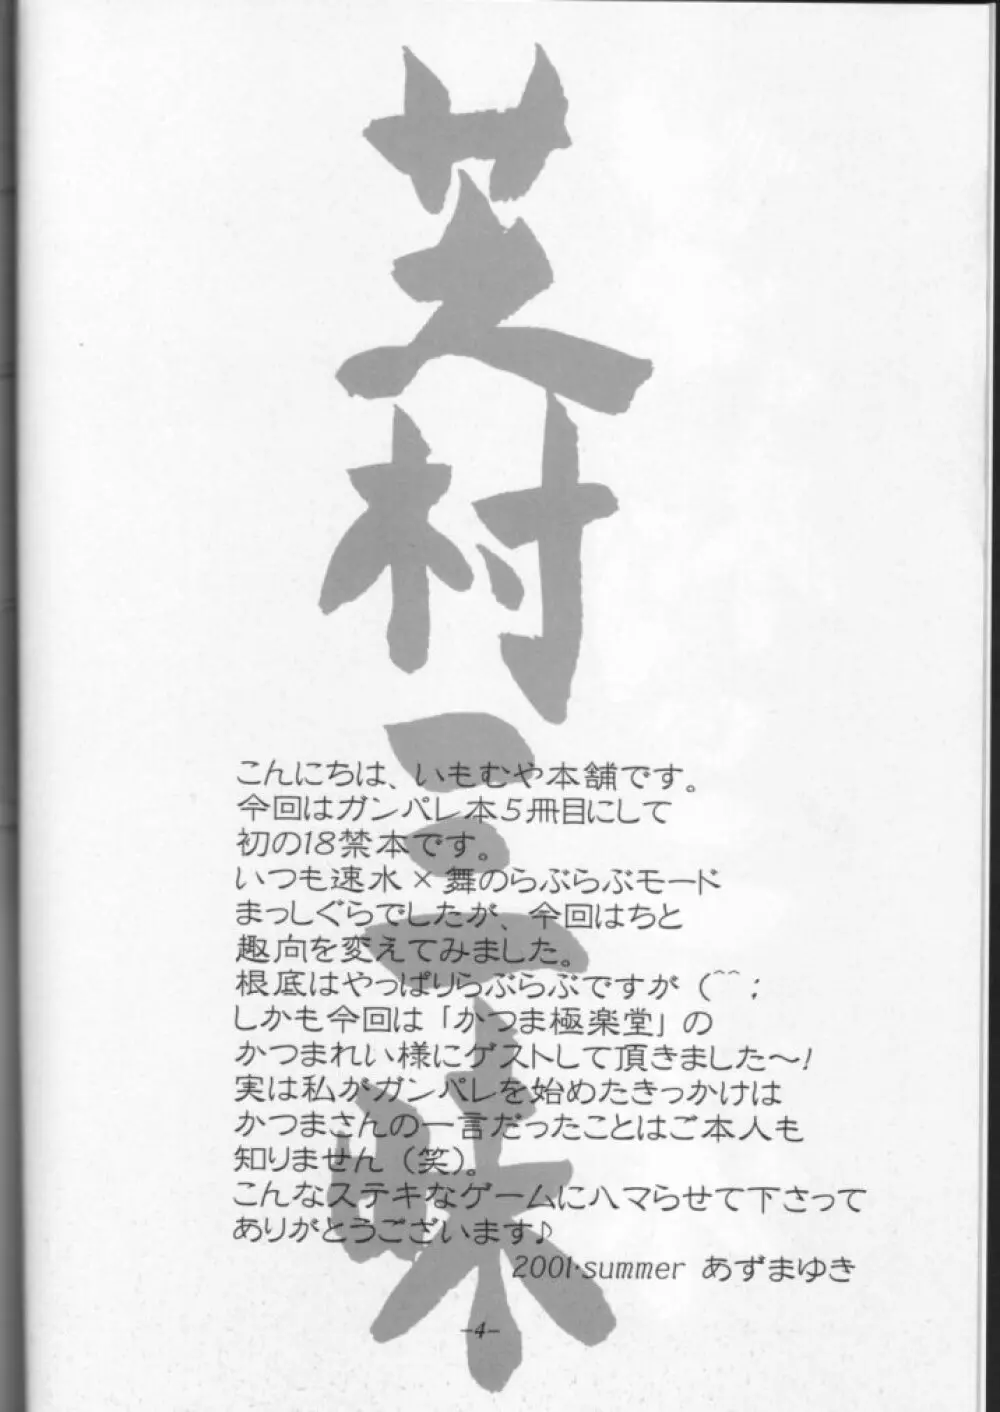 芝村三昧
こんにちは、いもむや本舗です。
今回はガンパレ本5冊目にして
初の18禁本です。
いつも速水×舞のらぶらぶモード
まっしぐらでしたが、今回はちと
趣向を変えてみました。
根底はやっぱりらぶらぶですが(^^;
しかも今回は「かつま極楽堂」の
かつまれい様にゲストして頂きました〜!
実は私がガンパレを始めたきっかけは
かつまさんの一言だったことはご本人も
知りません(笑)。
こんなステキなゲームにハマらせて下さって
ありがとうございます♪
2001・summer あずまゆき
-4-